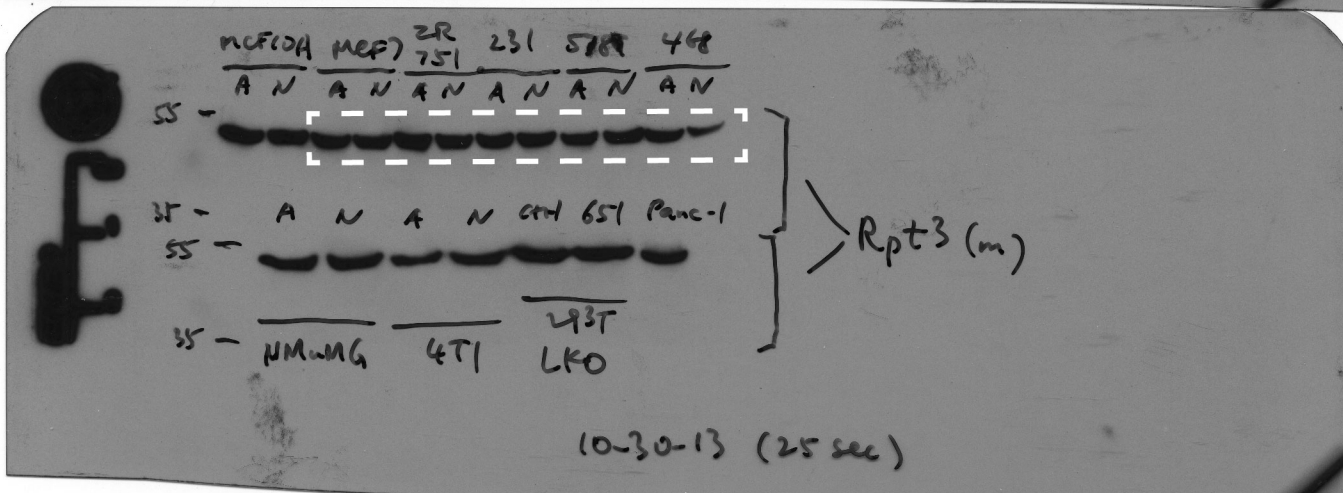 MCF10A MCF7 ZR 751 231 468
A N A N A N A N A N A N
55 -
35 - A N A N Ctrl 651 Panc-1
55 -
Rpt3 (m)
35 - NMuMG 4T1 293T LKO
10-30-13 (25 sec)